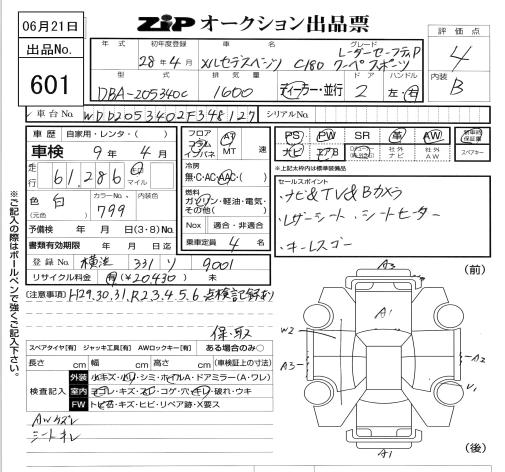 06月21日
ZIP オークション出品票
出品No.
601
年式
初年度登録
28年4月
車名
メルセデスベンツ C180
グレード
レーダーセーフティP
クーペスポーツ
評価点
4
内装
B
型式
DBA-205340C
排気量
1600
ディーラー・並行
ドア
2
ハンドル
左・右
車台No.
WDD2053402F348127
シリアルNo.
車歴 自家用・レンタ・( )
車検 9年4月
走行 61,286 キロ マイル
色 (元色) 白
カラーNo. 799
内装色
予備検 年 月 日(3・8)No.
書類有効期限 年 月 日迄
登録No. 横浜 331 ソ 9001
リサイクル料金 有(¥20430) 未
(注意事項) H29.30.31.R2.3.4.5.6 点検記録有り
保・取
フロア コラム インパネ
AT MT 速
冷房
無・C・AC・AAC・( )
燃料
ガソリン・軽油・電気・その他( )
Nox 適合・非適合
乗車定員 4 名
PS PW SR 革 AW
ナビ エアB 社外ナビ 社外AW
新車時保証書
スペアキー
※上記太枠内は標準装備品
セールスポイント
・ナビ&TV&Bカメラ
・レザーシート・シートヒーター
・キーレスゴー
※ご記入の際はボールペンで強くご記入下さい。
スペアタイヤ[有] ジャッキ工具[有] AWロックキー[有] ある場合のみ○
長さ cm 幅 cm 高さ cm (車検証上の寸法)
検査記入
外装 小キズ・小凹・シミ・ホイルA・ドアミラー(A・ワレ)
室内 ヨゴレ・キズ・スレ・コゲ・穴・キレ・破れ・ウキ
FW トビ石・キズ・ヒビ・リペア跡・X要ス
AWキズレ
シートキレ
(前)
A3
A1
W2
A3
A2
V1
A1
(後)